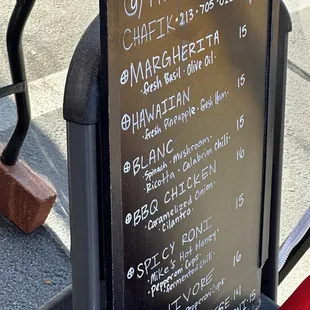 CHAFIK • 213 • 705 •
MARGHERITA 15
• fresh Basil • Olive Oil •
HAWAIIAN 15
• fresh Pineapple • fresh Ham •
BLANC 15
Spinach • Mushroom •
• Ricotta • Calabrian Chili •
BBQ CHICKEN 16
• Caramelized Onion •
• Cilantro
SPICY RONI 15
• Mike's Hot Honey •
• Pepperoni Cups •
• Fermented Chili •
NIVORE 16
Pepperoni
14
15